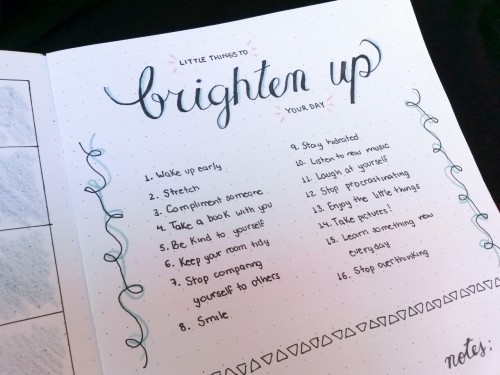 LITTLE THINGS TO
brighten up
YOUR DAY
1. Wake up early
2. Stretch
3. Compliment someone
4. Take a book with you
5. Be Kind to yourself
6. Keep your room tidy
7. Stop comparing
yourself to others
8. Smile
9. Stay hidrated
10. Listen to new music
11. Laugh at yourself
12. Stop procrastinating
13. Enjoy the little things
14. Take pictures!
15. Learn something new
everyday
16. Stop overthinking
notes: